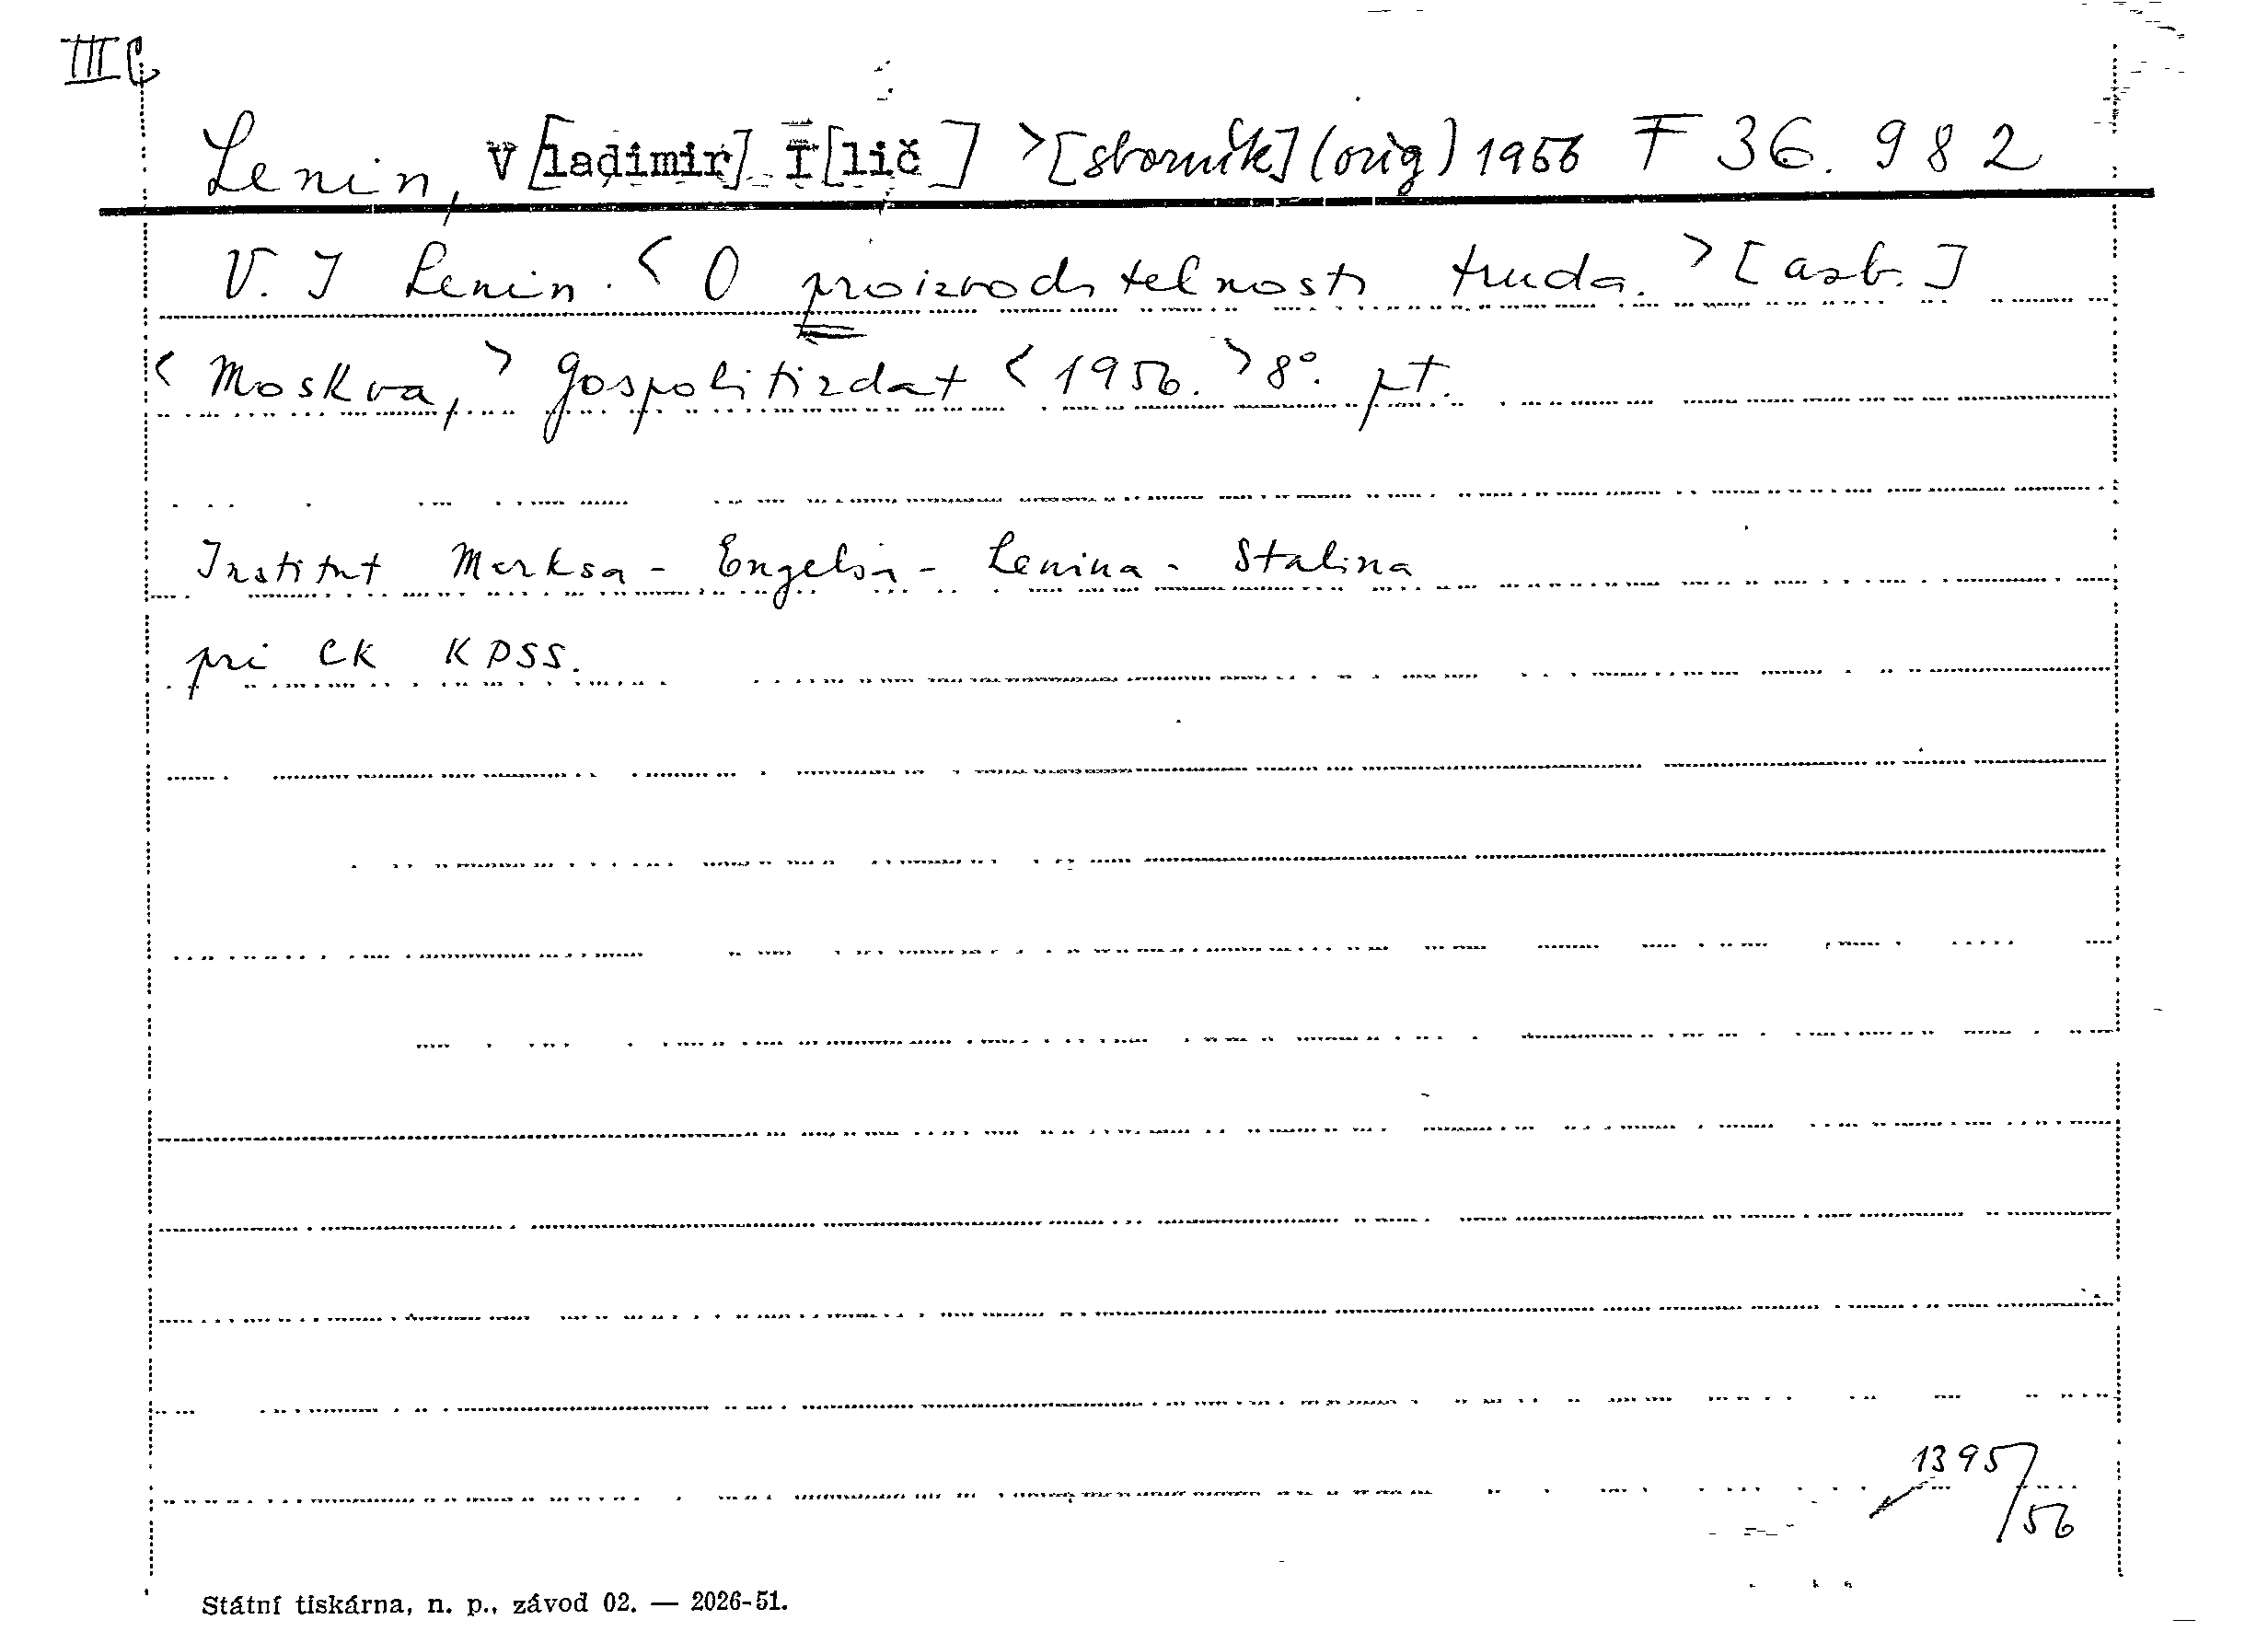 III C
Lenin, V[ladimir] I[lič] >[sborník] (orig) 1956 F 36.982
V. I Lenin. < O proizvoditelnosti truda. > [azb.]
< Moskva, > Gospolitizdat < 1956. > 8°. pt.
Institut Marksa - Engelsa - Lenina - Stalina
pri CK KPSS.
1395/56
Státní tiskárna, n. p., závod 02. — 2026-51.